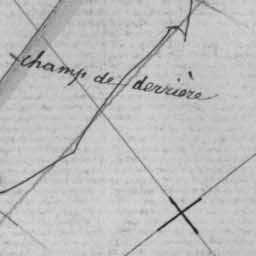 champ de derrière